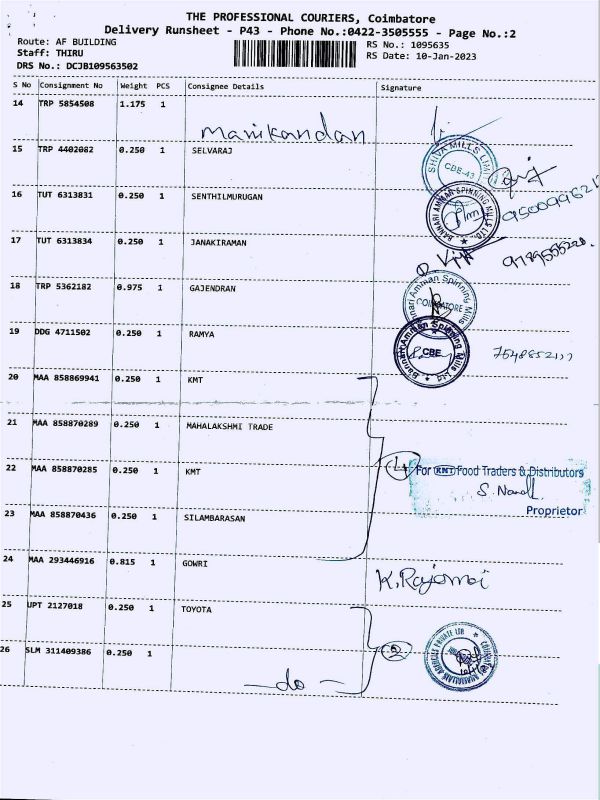 THE PROFESSIONAL COURIERS, Coimbatore
Delivery Runsheet - P43 - Phone No.:0422-3505555 - Page No.:2
Route: AF BUILDING
RS No.: 1095635
Staff: THIRU
RS Date: 10-Jan-2023
DRS No.: DCJB109563502
S No Consignment No Weight PCS Consignee Details Signature
14 TRP 5854508 1.175 1
Manikandan
15 TRP 4402082 0.250 1 SELVARAJ
SHIVA MILLS LIMI
CBE-43
16 TUT 6313831 0.250 1 SENTHILMURUGAN
BANNARI AMMAN SPINNING MILLS LTD.
17 TUT 6313834 0.250 1 JANAKIRAMAN
18 TRP 5362182 0.975 1 GAJENDRAN
Bannari Amman Spinning Mills
COIMBATORE
19 DDG 4711502 0.250 1 RAMYA
Bannari Amman Spinning Mills Ltd.
CBE
20 MAA 858869941 0.250 1 KMT
21 MAA 858870289 0.250 1 MAHALAKSHMI TRADE
22 MAA 858870285 0.250 1 KMT
For KMT Food Traders & Distributors
Proprietor
23 MAA 858870436 0.250 1 SILAMBARASAN
24 MAA 293446916 0.815 1 GOWRI
25 UPT 2127018 0.250 1 TOYOTA
26 SLM 311409386 0.250 1
-do-